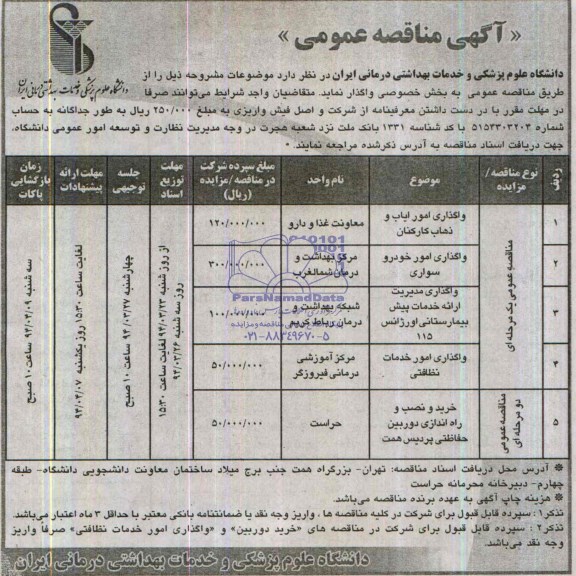 « آگهی مناقصه عمومی »
دانشگاه علوم پزشکی و خدمات بهداشتی درمانی ایران
دانشگاه علوم پزشکی و خدمات بهداشتی درمانی ایران در نظر دارد موضوعات مشروحه ذیل را از
طریق مناقصه عمومی به بخش خصوصی واگذار نماید. متقاضیان واجد شرایط می‌توانند صرفا
در مهلت مقرر با در دست داشتن معرفینامه از شرکت و اصل فیش واریزی به مبلغ ۲۵۰/۰۰۰ ریال به طور جداگانه به حساب
شماره ۵۱۵۳۳۰۳۲۰۴ با کد شناسه ۱۳۳۱ بانک ملت نزد شعبه هجرت در وجه مدیریت نظارت و توسعه امور عمومی دانشگاه،
جهت دریافت اسناد مناقصه به آدرس ذکرشده مراجعه نمایند. *
ردیف | نوع مناقصه/ مزایده | موضوع | نام واحد | مبلغ سپرده شرکت در مناقصه/مزایده (ریال) | مهلت توزیع اسناد | جلسه توجیهی | مهلت ارائه پیشنهادات | زمان بازگشایی پاکات
مناقصه عمومی یک مرحله ای
۱ | واگذاری امور ایاب و ذهاب کارکنان | معاونت غذا و دارو | ۱۲۰/۰۰۰/۰۰۰
۲ | واگذاری امور خودرو سواری | مرکز بهداشت و درمان شمالغرب | ۳۰۰/۰۰۰/۰۰۰
۳ | واگذاری مدیریت ارائه خدمات پیش بیمارستانی اورژانس ۱۱۵ | شبکه بهداشت و درمان رباط کریم | ۱۰۰/۰۰۰/۰۰۰
۴ | واگذاری امور خدمات نظافتی | مرکز آموزشی درمانی فیروزگر | ۵۰/۰۰۰/۰۰۰
مناقصه عمومی دو مرحله ای
۵ | خرید و نصب و راه اندازی دوربین حفاظتی پردیس همت | حراست | ۵۰/۰۰۰/۰۰۰
از روز شنبه ۹۴/۰۳/۲۳ لغایت ساعت ۱۵:۳۰
روز سه شنبه ۹۴/۰۳/۲۶
چهارشنبه ۹۴/۰۳/۲۷ ساعت ۱۰ صبح
لغایت ساعت ۱۵:۳۰ روز یکشنبه ۹۴/۰۴/۰۷
سه شنبه ۹۴/۰۴/۰۹ ساعت ۱۰ صبح
ParsNamadData
۰۲۱-۸۸۳۴۹۶۷۰-۵
* آدرس محل دریافت اسناد مناقصه: تهران- بزرگراه همت جنب برج میلاد ساختمان معاونت دانشجویی دانشگاه- طبقه
چهارم- دبیرخانه محرمانه حراست
* هزینه چاپ آگهی به عهده برنده مناقصه می‌باشد.
تذکر۱: سپرده قابل قبول برای شرکت در کلیه مناقصه ها ، واریز وجه نقد یا ضمانتنامه بانکی معتبر با حداقل ۳ ماه اعتبار می‌باشد.
تذکر۲ : سپرده قابل قبول برای شرکت در مناقصه های «خرید دوربین» و «واگذاری امور خدمات نظافتی» صرفاً واریز
وجه نقد می‌باشد.
دانشگاه علوم پزشکی و خدمات بهداشتی درمانی ایران